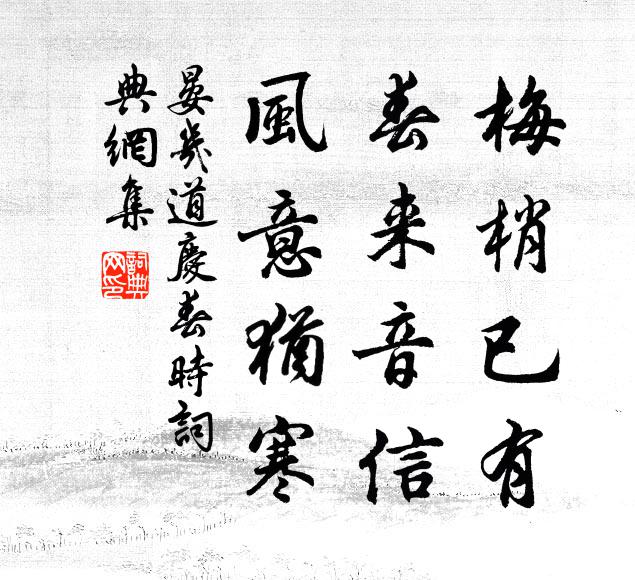 梅梢已有
春来音信
風意猶寒
晏幾道慶春時詞
典網集
詞典網印